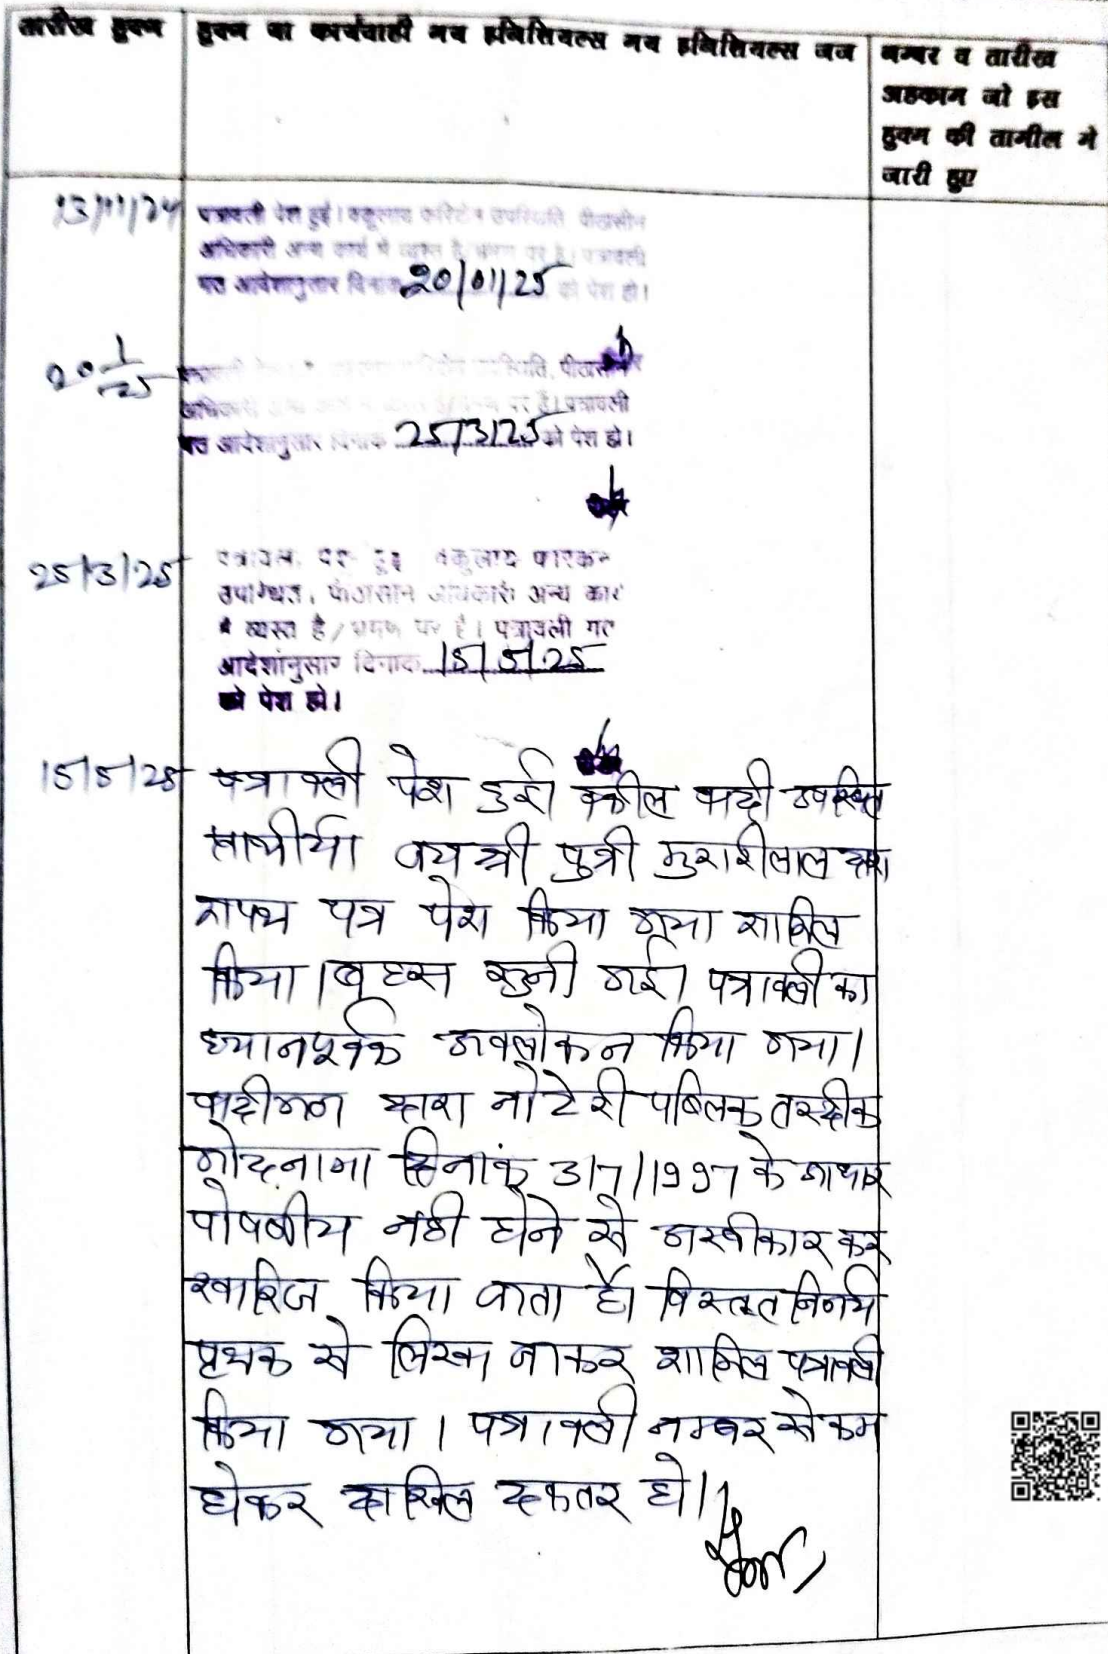 तारीख हुक्म
हुक्म या कार्यवाही मय इनिसियल्स मय इनिसियल्स जज
नम्बर व तारीख
अहकाम जो इस
हुक्म की तामील मे
जारी हुए
13/11/24
पत्रावली पेश हुई। वकूलाय फरिकेन उपस्थिति पीठासीन
अधिकारी अन्य कार्य मे व्यस्त है/भ्रमण पर है। पत्रावली
गत आदेशानुसार दिनांक 20/01/25 को पेश हो।
20/1/25
उपस्थिति, पीठासीन
अधिकारी पर है। पत्रावली
गत आदेशानुसार दिनांक 25/3/25 को पेश हो।
25/3/25
पत्रावली पेश हुई वकुलाय फरिकेन
उपस्थित, पीठासीन अधिकारी अन्य कार्य
मे व्यस्त है/भ्रमण पर है। पत्रावली गत
आदेशांनुसार दिनांक 15/5/25
को पेश हो।
15/5/25
पत्रावली पेश हुई। वकील वादी उपस्थित
जयश्री पुत्री मुरारीलाल द्वारा
शपथ पत्र पेश किया गया शामिल
किया। बहस सुनी गई। पत्रावली का
ध्यानपूर्वक अवलोकन किया गया।
वादीगण द्वारा नोटेरी पब्लिक तस्दीक
गोदनामा दिनांक 3/7/1997 के आधार
पोषणीय नही होने से अस्वीकार कर
खारिज किया जाता है। विस्तृत निर्णय
पृथक से लिखा जाकर शामिल पत्रावली
किया गया। पत्रावली नम्बर से कम
होकर दाखिल दफ्तर हो।